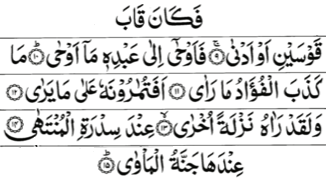 فَكَانَ قَابَ
قَوْسَيْنِ اَوْ اَدْنٰى ۚ﴿۹﴾ فَاَوْحٰۤى اِلٰى عَبْدِهٖ مَاۤ اَوْحٰى ؕ﴿۱۰﴾ مَا
كَذَبَ الْفُؤَادُ مَا رَاٰى ﴿۱۱﴾ اَفَتُمٰرُوْنَهٗ عَلٰى مَا يَرٰى ﴿۱۲﴾
وَلَقَدْ رَاٰهُ نَزْلَةً اُخْرٰى ۙ﴿۱۳﴾ عِنْدَ سِدْرَةِ الْمُنْتَهٰى ﴿۱۴﴾
عِنْدَهَا جَنَّةُ الْمَاْوٰى ؕ﴿۱۵﴾